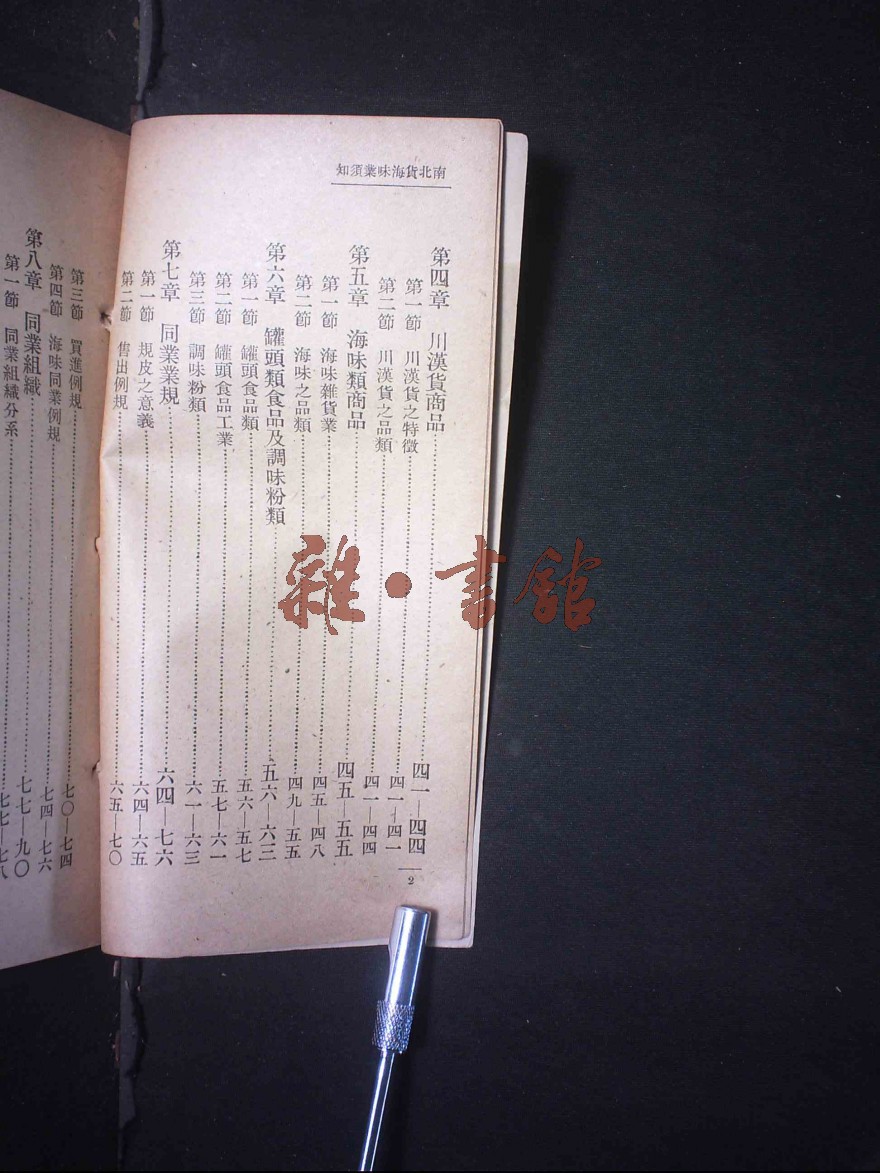 南北貨海味業須知
第四章 川漢貨商品……四一—四四
第一節 川漢貨之特徵……四一—四一
第二節 川漢貨之品類……四一—四四
第五章 海味類商品……四五—五五
第一節 海味雜貨業……四五—四八
第二節 海味之品類……四九—五五
第六章 罐頭類食品及調味粉類……五六—六三
第一節 罐頭食品類……五六—五七
第二節 罐頭食品工業……五七—六一
第三節 調味粉類……六一—六三
第七章 同業業規……六四—七六
第一節 規皮之意義……六四—六五
第二節 售出例規……六五—七〇
2
第三節 買進例規……七〇—七四
第四節 海味同業例規……七四—七六
第八章 同業組織……七七—九〇
第一節 同業組織分系……七七—七八
雜·書館